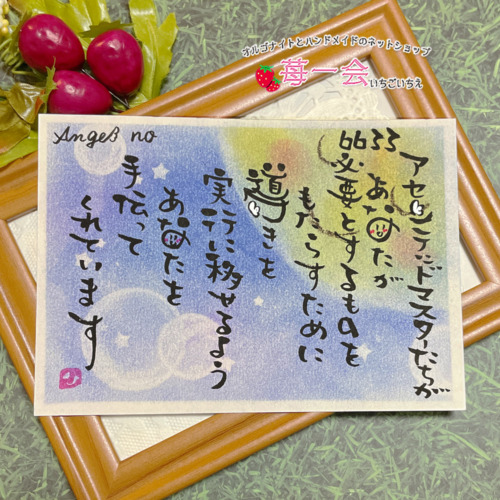 オルゴナイトとハンドメイドのネットショップ
苺一会いちごいちえ
Angel no
6633
アセンテッドマスターたちが
あなたが
必要とするものを
もたらすために
導きを
実行に移せるよう
あなたを
手伝って
くれています